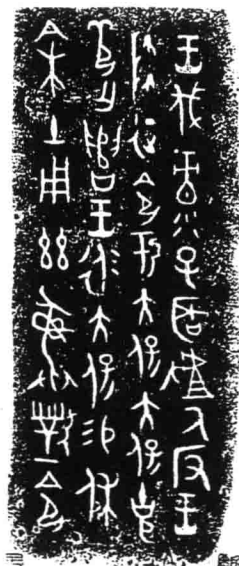 王伐彔子𦔻𠭯氒反王
降征令于大保大保克
芍亡遣王𠇷大保易休
余土用𢆶彝對令